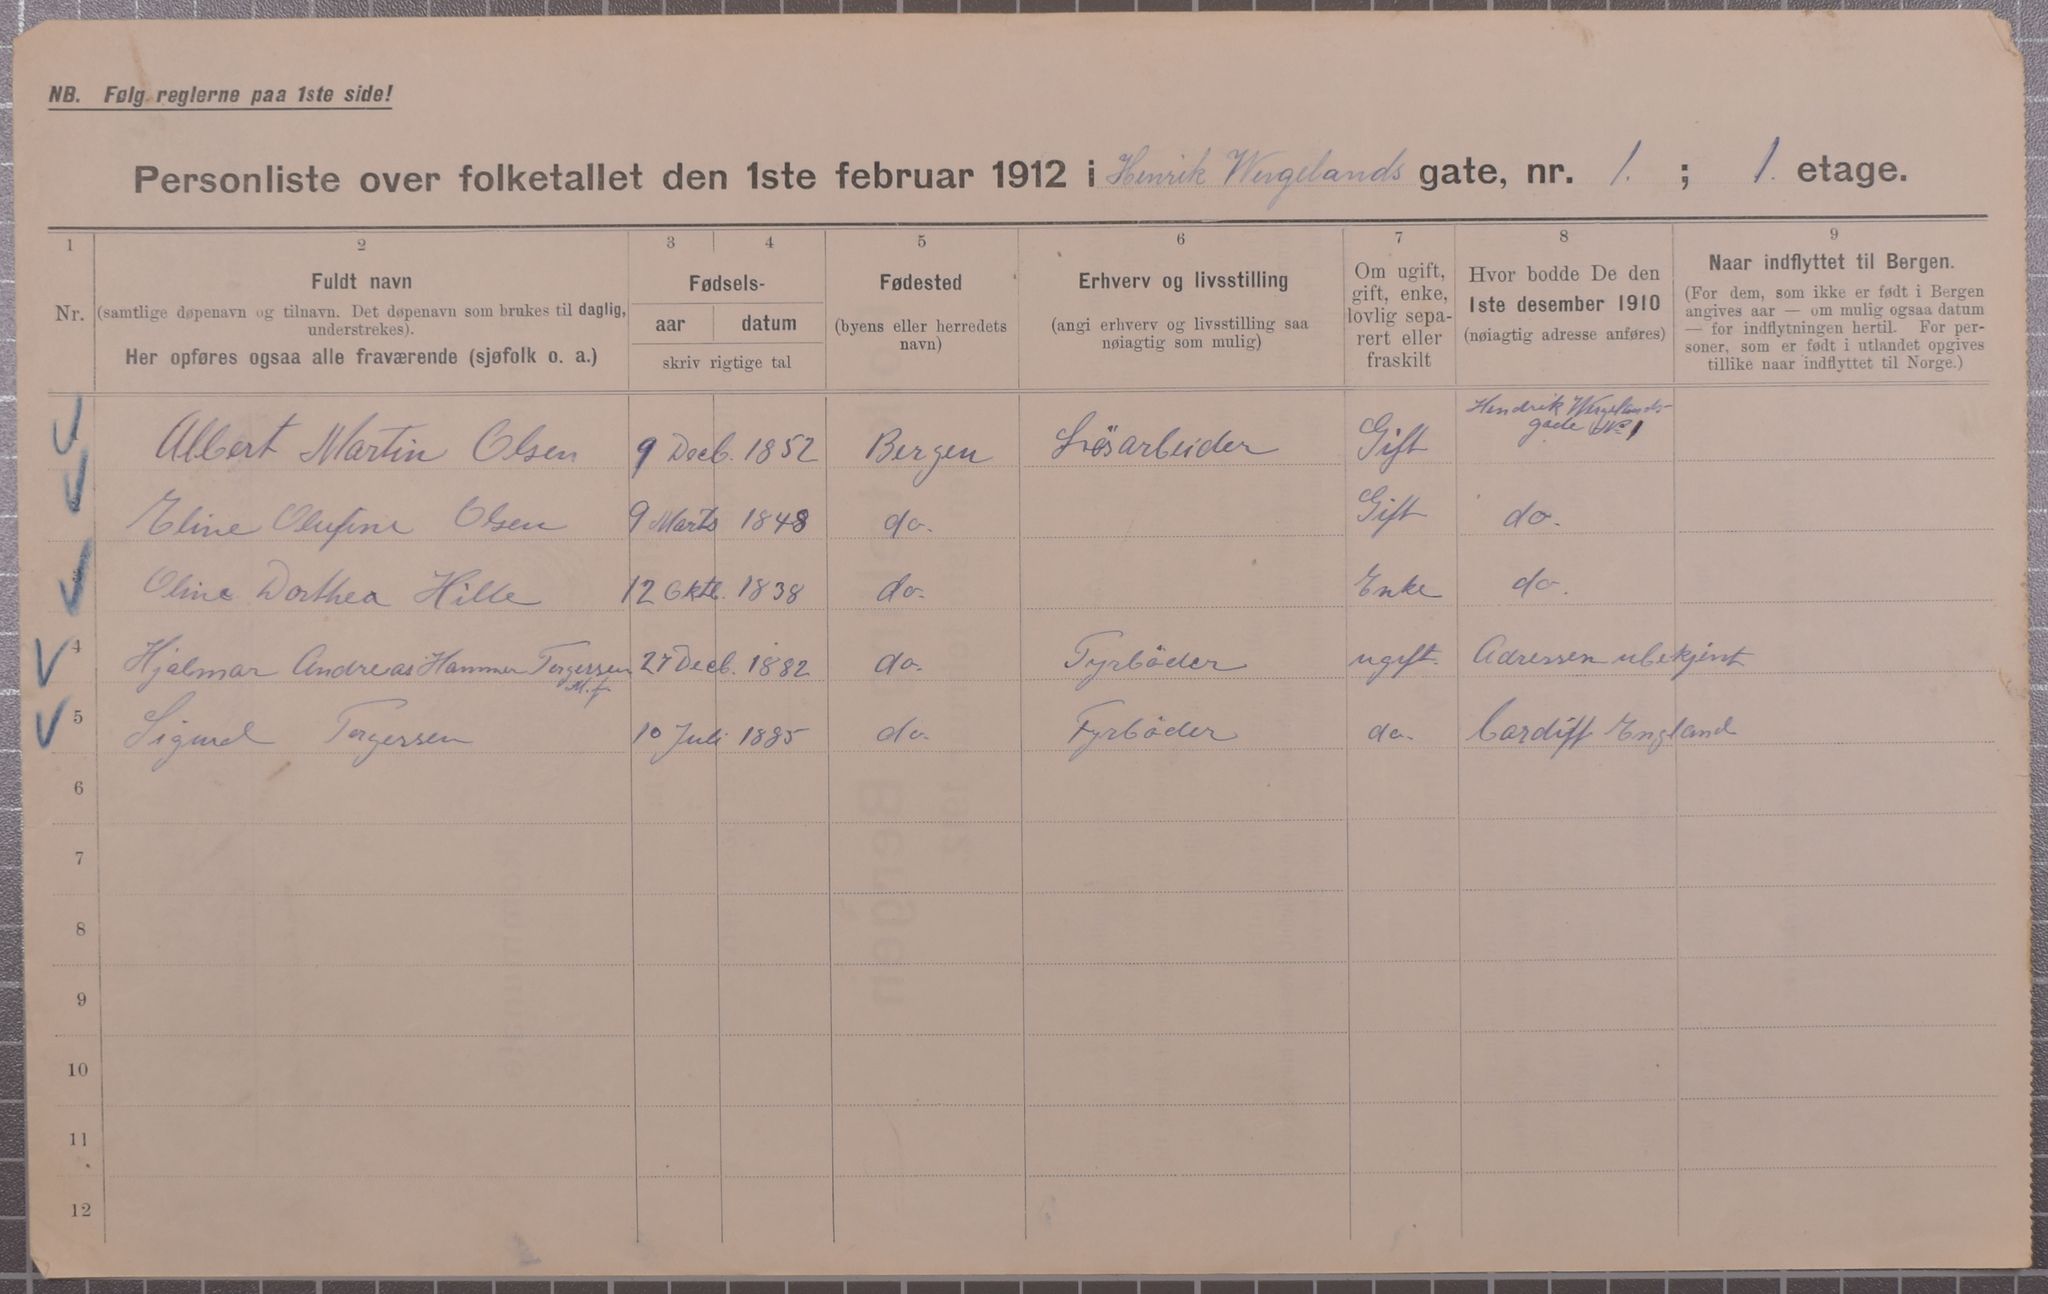 NB. Følg reglerne paa 1ste side!
Personliste over folketallet den 1ste februar 1912 i Henrik Wergelands gate, nr. 1. ; 1. etage.
1 2 3 4 5 6 7 8 9
Nr.
Fuldt navn
(samtlige døpenavn og tilnavn. Det døpenavn som brukes til daglig,
understrekes).
Her opføres ogsaa alle fraværende (sjøfolk o. a.)
Fødsels-
aar datum
skriv rigtige tal
Fødested
(byens eller herredets
navn)
Erhverv og livsstilling
(angi erhverv og livsstilling saa
nøiagtig som mulig)
Om ugift,
gift, enke,
lovlig sepa-
rert eller
fraskilt
Hvor bodde De den
1ste desember 1910
(nøiagtig adresse anføres)
Naar indflyttet til Bergen.
(For dem, som ikke er født i Bergen
angives aar — om mulig ogsaa datum
— for indflytningen hertil. For per-
soner, som er født i utlandet opgives
tillike naar indflyttet til Norge.)
Hendrik Wergelands-
gade No 1
Albert Martin Olsen 9 Decb. 1852 Bergen Løsarbeider Gift
Eline Olufine Olsen 9 Marts 1848 do. Gift do.
Oline Dorthea Hille 12 Oktb. 1838 do. Enke do.
4 Hjalmar Andreas Hammer Torgersen 27 Decb. 1882 do. Fyrbøder ugift. Adressen ubekjent
5 Sigurd Torgersen 10 Juli 1885 do. Fyrbøder do. Cardiff England
6
7
8
9
10
11
12